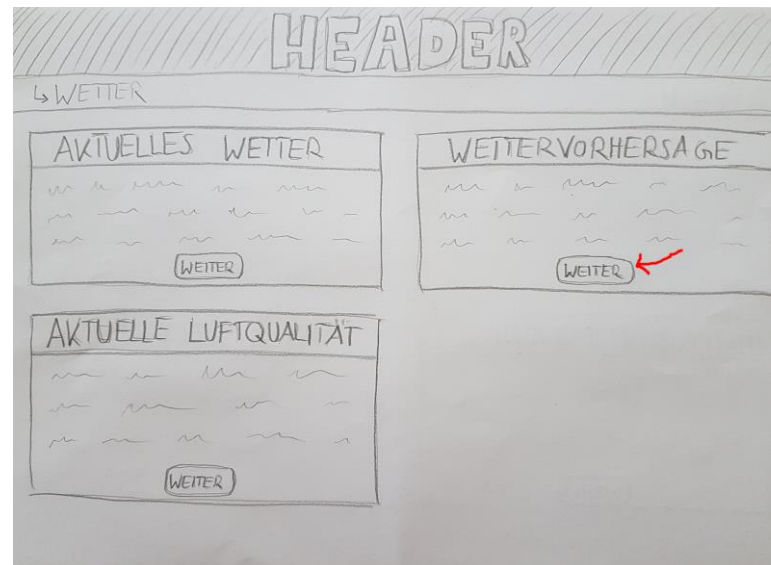 HEADER
↳ WETTER
AKTUELLES WETTER
WEITER
WETTERVORHERSAGE
WEITER
AKTUELLE LUFTQUALITÄT
WEITER